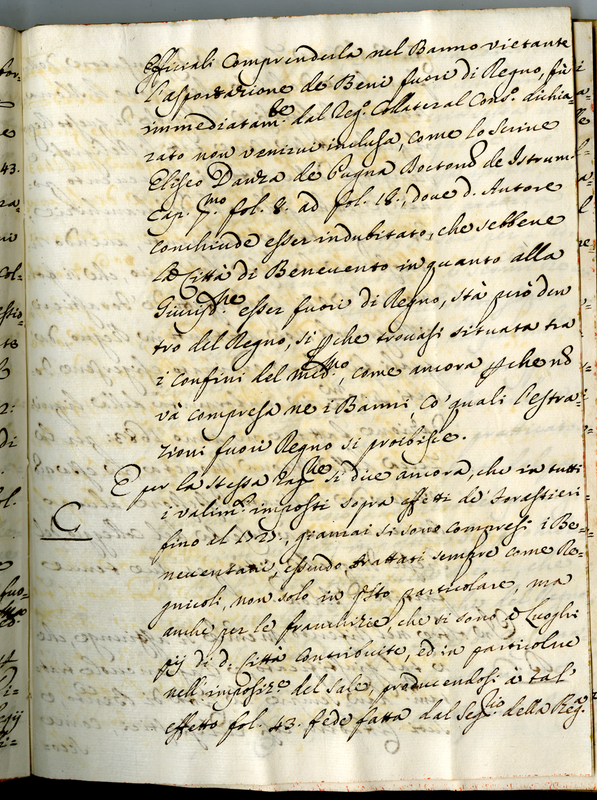 Officiali Comprenderla nel Banno vietante
l'asportazione de Beni fuori di Regno, fù
immediatam.te dal Reg.o Collateral Cons.o dichia-
rato non venirvi inclusa, come lo scrive
Eliseo Danza de Pugna Doctorũ de Istrum.
Cap. p.mo fol. 8. ad fol. 18., dove d. Autore
conchiude esser indubitato, che sebbene
la Città di Benevento in quanto alla
Giurisd.ne esser fuori di Regno, stà però den
tro del Regno, sì che trovasi situata tra
i confini del med.mo, come ancora che nõ
và compresa ne i Banni, co' quali l'estra-
zioni fuori Regno si proibisce.
E per la stessa rag.ne si dice ancora, che in tutti
i valim.ti imposti sopra effetti de' forastieri
C
fino al 1727., giamai si sono compresi i Be-
neventani, essendo trattati sempre come Re-
gnicoli, non solo in q̃sto particolare, ma
anche per le franchizie che vi sono à Luoghi
pij di d.a Città contribuite, ed in particolare
nell'imposiz.e del Sale, producendosi à tal
effetto fol. 43. fede fatta dal Seg.rio della Reg.